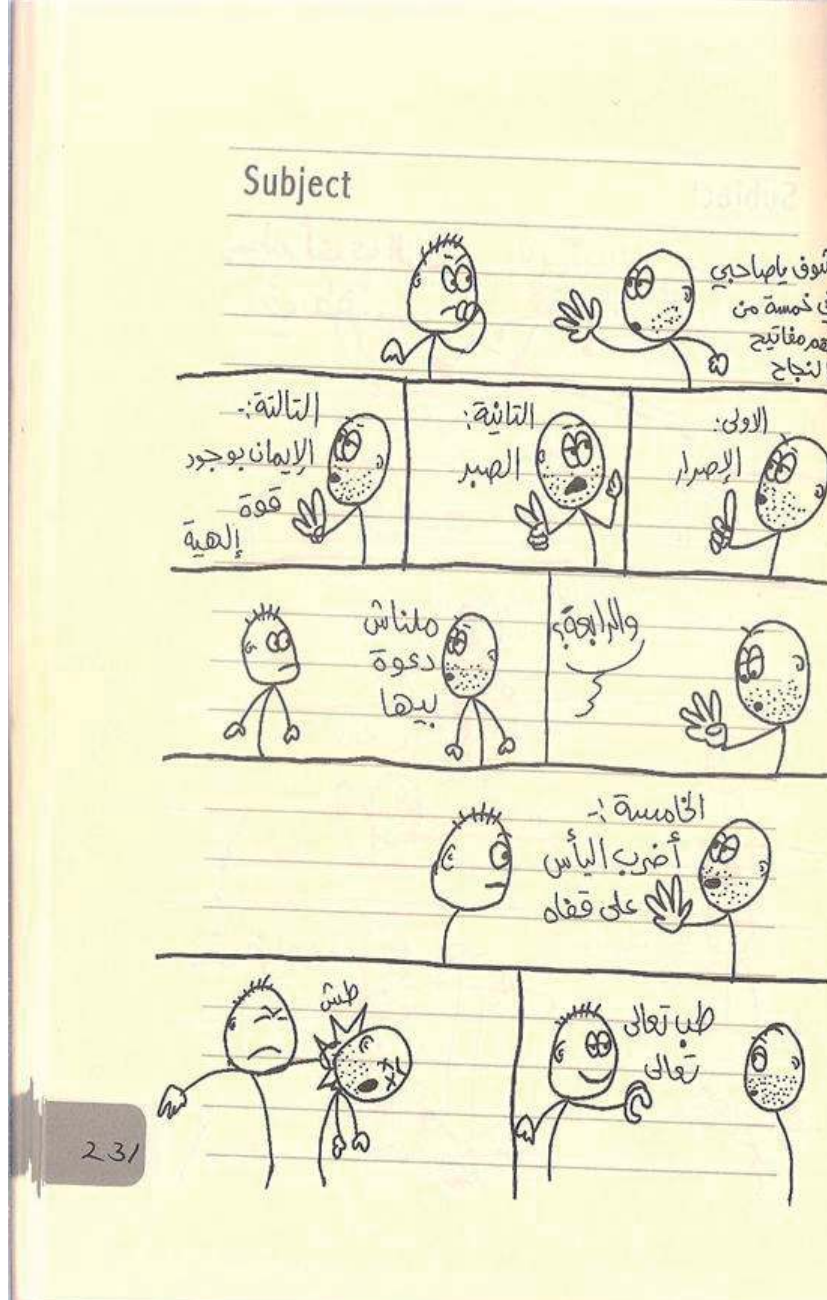 Subject
شوف ياصاحبي
خمسة من
مفاتيح
النجاح
الاولى:
الإصرار
التانية:
الصبر
التالتة:-
الإيمان بوجود
قوة
إلهية
والرابعة؟
ملناش
دعوة
بيها
الخامسة:-
أضرب اليأس
على قفاه
طب تعالى
تعالى
طش
231